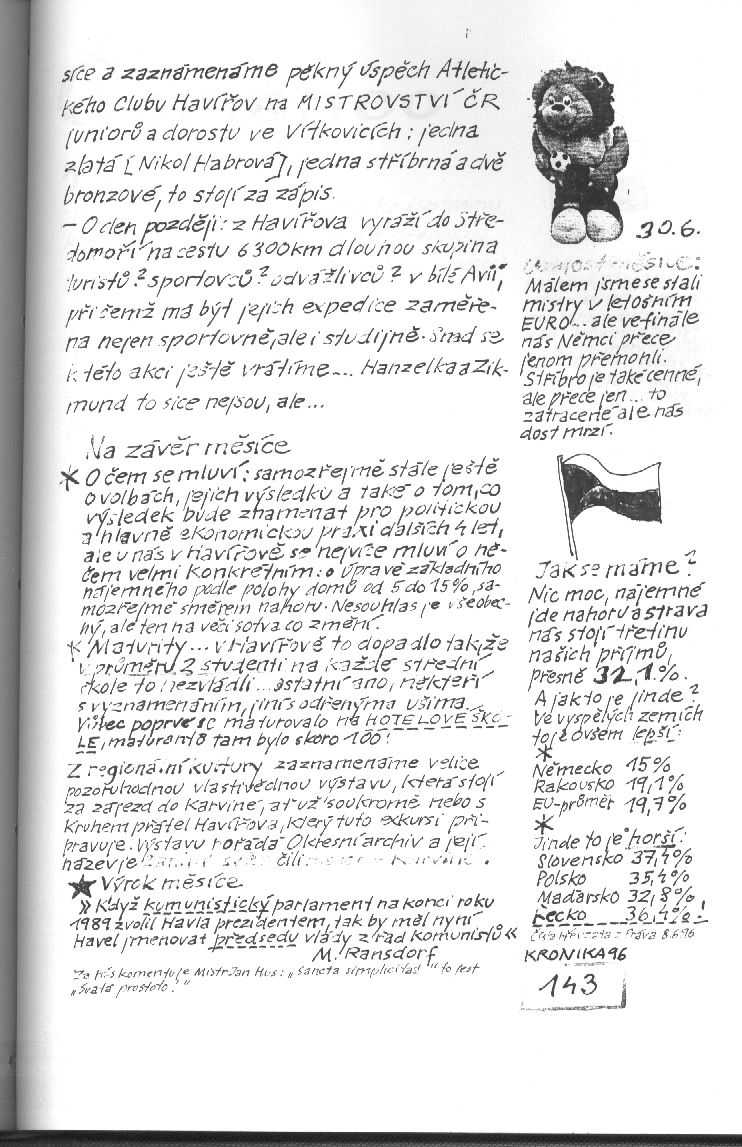 síce a zaznamenáme pěkný úspěch Atletic-
kého Clubu Havířov na MISTROVSTVÍ ČR
juniorů a dorostu ve Vítkovicích: jedna
zlatá [Nikol Habrová], jedna stříbrná a dvě
bronzové, to stojí za zápis.
– O den později: z Havířova vyráží do Stře-
domoří na cestu 6300km dlouhou skupina
turistů? sportovců? odvážlivců? v bílé Avii,
přičemž má být jejich expedice zaměře-
na nejen sportovně, ale i studijně. Snad se
k této akci ještě vrátíme... Hanzelka a Zik-
mund to sice nejsou, ale...
Na závěr měsíce
* O čem se mluví: samozřejmě stále ještě
o volbách, jejich výsledku a také o tom, co
výsledek bude znamenat pro politickou
a hlavně ekonomickou praxi dalších 4 let,
ale u nás v Havířově se nejvíce mluví o ně-
čem velmi konkrétním: o úpravě základního
nájemného podle polohy domů od 5 do 15%, sa-
mozřejmě směrem nahoru. Nesouhlas je všeobec-
ný, ale ten na věci sotva co změní.
* Maturity... v Havířově to dopadlo tak, že
v průměru 2 studenti na každé střední
škole to nezvládli... ostatní ano, někteří
s vyznamenáním, jiní s odřenýma ušima.
Vůbec poprvé se maturovalo na HOTELOVÉ ŠKO-
LE, maturantů tam bylo skoro 100!
Z regionální kultury zaznamenáme velice
pozoruhodnou vlastivědnou výstavu, která stojí
za zájezd do Karviné, ať už soukromě nebo s
Kruhem přátel Havířova, který tuto exkursi při-
pravuje. Výstavu pořádá Okresní archiv a její
název je
★ Výrok měsíce
» Když komunistický parlament na konci roku
1989 zvolil Havla prezidentem, tak by měl nyní
Havel jmenovat předsedu vlády z řad komunistů «
M. Ransdorf
Za nás komentuje Mistr Jan Hus: „Sancta simplicitas!" to jest
„Svatá prostoto!"
30.6.
Málem jsme se stali
mistry v letošním
EURO... ale ve finále
nás Němci přece
jenom přemohli.
Stříbro je také cenné,
ale přece jen... to
zatracené ale nás
dost mrzí.
Jak se máme?
Nic moc, nájemné
jde nahoru a strava
nás stojí třetinu
našich příjmů,
přesně 32,1%.
A jak to je jinde?
Ve vyspělých zemích
to je ovšem lepší:
*
Německo 15%
Rakousko 19,1%
EU-průměr 19,7%
*
Jinde to je horší:
Slovensko 37,4%
Polsko 35,4%
Maďarsko 32,8%
Řecko 36,4%!
Práva 8.6.96
KRONIKA 96
143